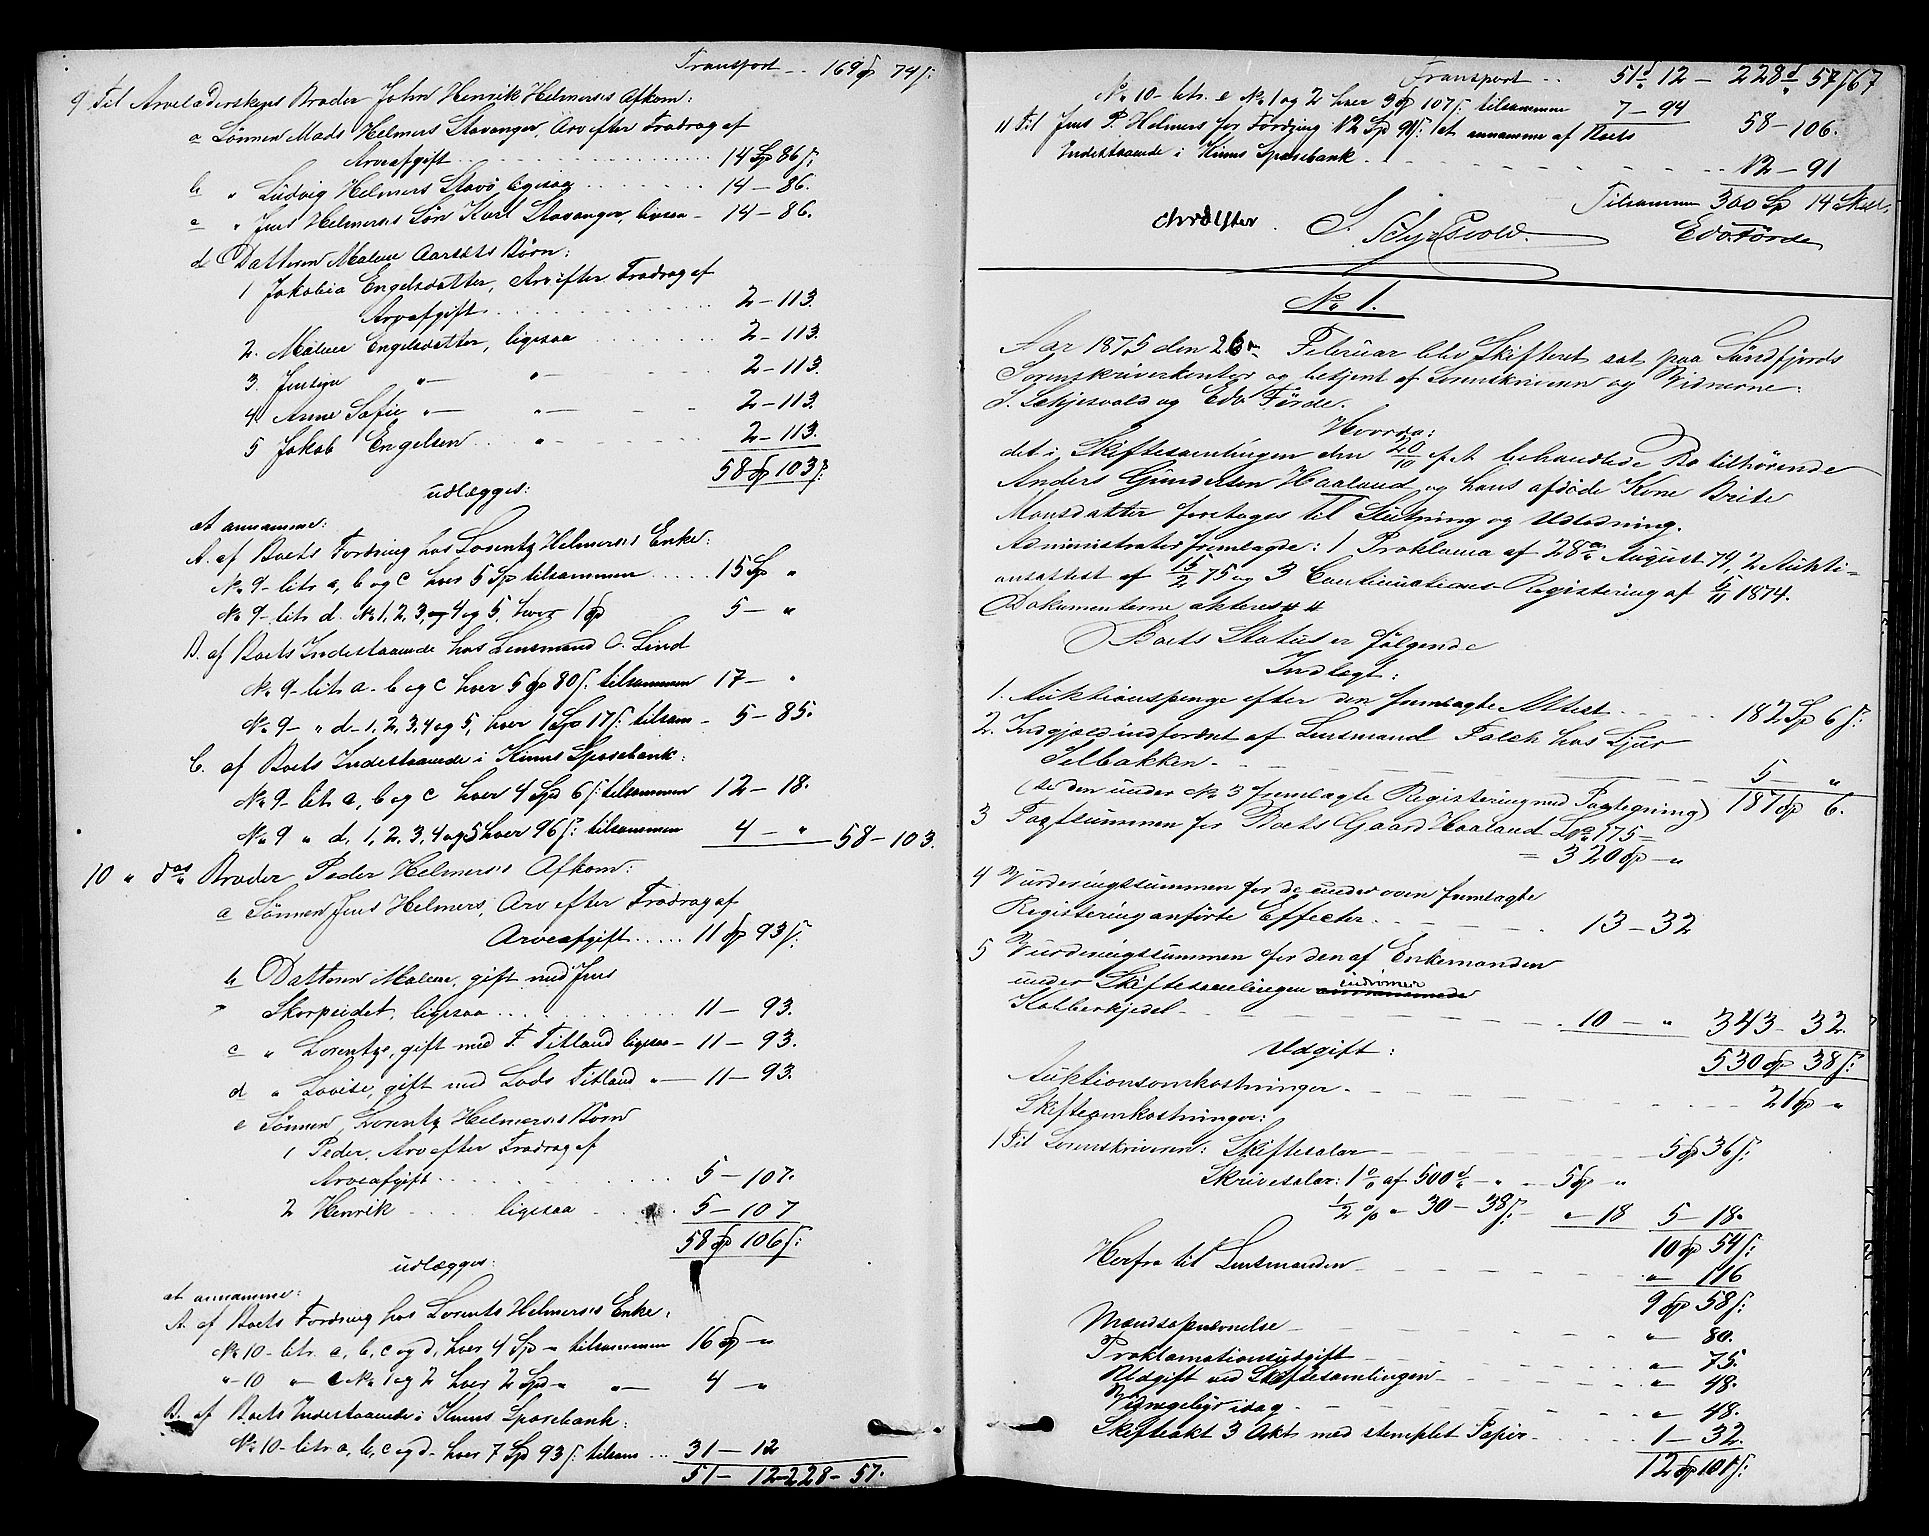 Transport .. 169 Sp 74 s:
9 Til Arveladerskens Broder John Henrik Helmers's Afkom:
a Sönnen Mads Helmers Stavanger, Arv efter Fradrag af
Arveafgift . . . 14 Sp 86 s:
b " Ludvig Helmers Stavø, ligesaa . . . 14 - 86.
c " Jens Helmers's Søn Karl Stavanger, ligesaa - 14 - 86.
d Datteren Malene Aarseths Børn:
1 Jakobia Engelsdatter, Arv efter Fradrag af
Arveafgift . . . 2 - 113.
2. Malene Engelsdatter, ligesaa . . . 2 - 113.
3. Jensine " " 2 - 113.
4 Anne Sofie " " 2 - 113.
5 Jakob Engelsen " 2 - 113.
58 Sp 103 s:
udlægges:
at annamme:
A. af Boets Fordring hos Lorentz Helmers's Enke:
No 9 - litr. a, b og c hver 5 Sp tilsammen . . . 15 Sp "
No 9 - litr. d. No 1, 2, 3, 4 og 5, hver 1 Sp 5 - "
B. af Boets Indestaaende hos Lensmand C. Lind
No 9 - litr. a - b og c hver 5 Sp 80 s: tilsammen 17 - "
No 9 - " d - 1, 2, 3, 4 og 5, hver 1 Sp 17 s: tilsam - 5 - 85.
C. af Boets Indestaaende i Kinns Sparebank:
No 9 - litr. a, b og c hver 4 Spd 6 s: tilsammen 12 - 18.
No 9 " d. 1, 2, 3, 4 og 5 hver 96 s: tilsammen 4 - " 58 - 103.
10 " dos Broder Peder Helmers's Afkom:
a Sönnen Jens Helmers, Arv efter Fradrag af
Arveafgift . . . 11 Sp 93 s:
b Datteren Malene, gift med Jens
Skorpeidet, ligesaa . . . 11 - 93.
c " Lorentze, gift med T. Titland ligesaa - 11 - 93.
d " Lovise, gift med Lods Titland " - 11 - 93.
e Sönnen Lorentz Helmers's Børn
1 Peder, Arv efter Fradrag af
Arveafgift . . . 5 - 107.
2 Henrik . . . ligesaa . . . 5 - 107
58 Sp 106 s:
udlægges:
at annamme:
A. af Boets Fordring hos Lorents Helmers's Enke:
No 10 - litr. a, b, c og d, hver 4 Sp - tilsammen 16 Sp - "
" 10 " e No 1 og 2 hver 2 Spd " " 4 - "
B. af Boets Indestaaende i Kinns Sparebank:
No 10 - litr a, b, c og d - hver 7 Sp 93 s: tilsam ... 31 - 12
51 - 12 - 228 - 57.
67
Transport .. 51 d 12 - 228 d 57 s
No 10 - litr. e No 1 og 2 hver 3 Sp 107 s: tilsammen 7 - 94
58 - 106.
11 Til Jens P. Helmers for Fordring 12 Sp 91 s: at annamme af Boets
Indestaaende i Kinns Sparebank . . . 12 - 91
Tilsammen 300 Sp 14 Skill.
S. Schjesvold. Edv. Förde
No 1.
Aar 1875 den 26de Februar blev Skifteret sat paa Söndfjords
Sorenskriverkontor og betjent af Sorenskriveren og Vidnerne:
S. Schjesvold og Edv Förde.
Hvorda:
det i Skiftesamlingen den 20/10 f. A. behandlede Bo tilhørende
Anders Gundersen Haaland og hans afdöde Kone Brite
Monsdatter foretoges til Slutning og Udlodning.
Administrator fremlagde: 1 Proklama af 28de August 74, 2 Aukti=
onsattest af 15/2 75 og 3 Continuations Registering af 5/11 1874.
Dokumenterne akteres
Boets Status er følgende
Indtægt:
1. Auktionspenge efter den fremlagte Attest . . . 182 Sp 6 s:
2. Indgjæld indfordret af Lensmand Falch hos
Selbakken - . . . 5 - "
(se den under No 3 fremlagte Registering med Paategning) 187 Sp 6.
3 Taxtsummen for Boets Gaard Haaland Lno 175 =
= 320 Sp - "
4 Vurderingssummen for de under oven fremlagte
Registering anførte Effecter . . . 13 - 32
5 Vurderingssummen for den af Enkemanden
under Skiftesamlingen
Kobberkjedel - . . . 10 - " 343 - 32.
530 Sp 38 s:
Udgift:
Auktionsomkostninger - . . . 21 Sp - "
Skifteomkostninger:
1 Til Sorenskriveren: Skiftesalær - . . . 5 Sp 36 s:
Skrivesalær: 1 o/o af 500 d - " - 5 Sp "
1/2 o/o " 30 - 38 s: - " - 18 5 - 18.
10 Sp 54 s:
Herfra til Lensmanden - . . . " 116
9 Sp 58 s:
Mændsopnævnelse - " 80.
Proklamationsudgift - " 75.
Udgift ved Skiftesamlingen - " 48.
Vidnegebyr idag - " 48.
Skifteakt 3 Ark med stemplet Papir - 1 - 32.
12 Sp 101 s: